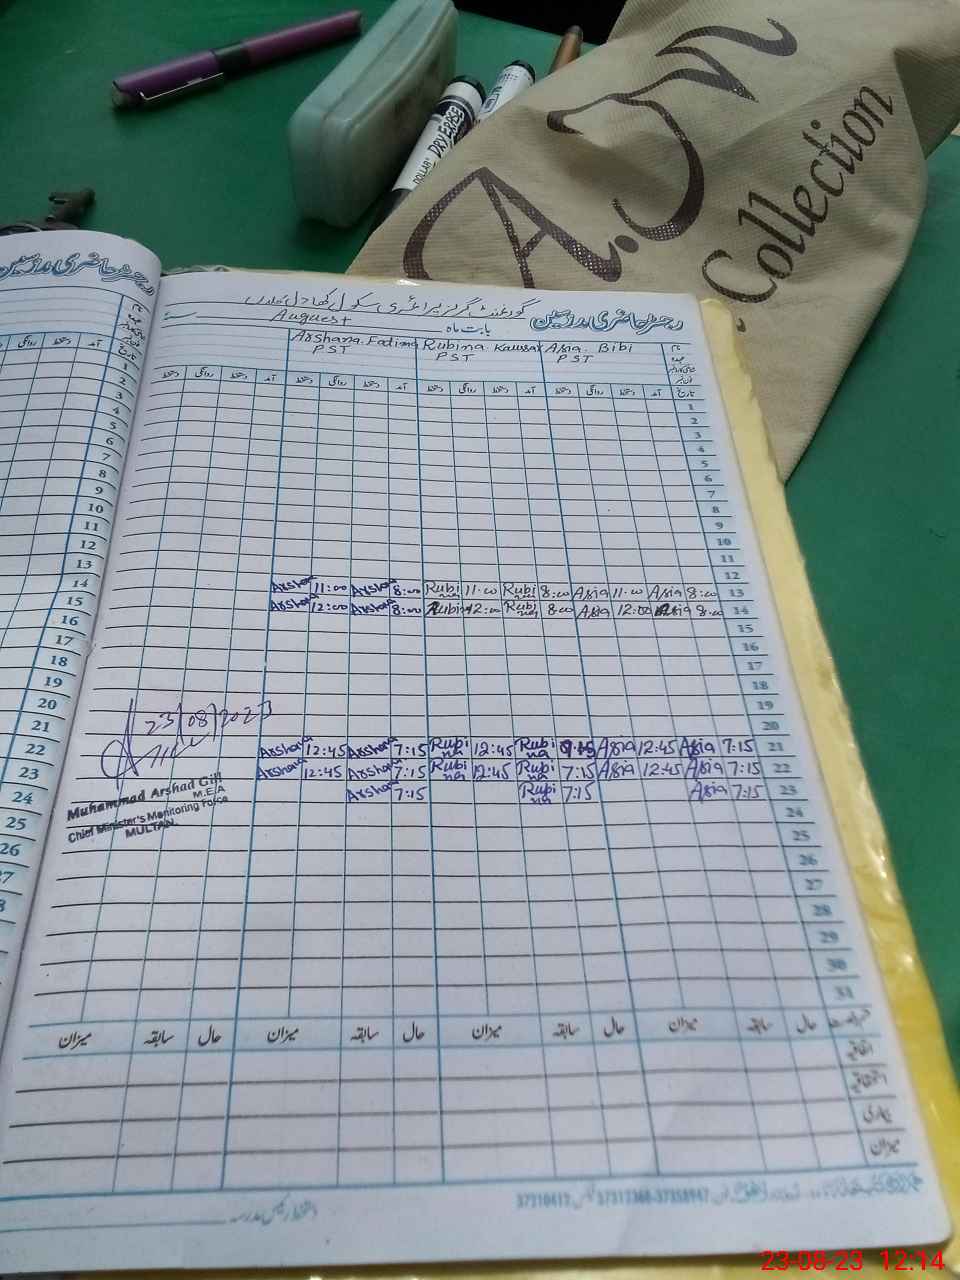 A.N
Collection
DOLLAR DRY ERASE
رجسٹر حاضری مدرسین
گورنمنٹ گرلز پرائمری سکول
رجسٹر حاضری مدرسین
بابت ماہ August
Arshana Fatima Rubina Kausar Asia Bibi
PST PST PST
تاریخ
آمد دستخط روانگی دستخط آمد دستخط روانگی دستخط آمد دستخط روانگی دستخط
1
2
3
4
5
6
7
8
9
10
11
12
Arshana 11:00 Arshana 8:00 Rubina 11:00 Rubina 8:00 Asia 11:00 Asia 8:00 13
Arshana 12:00 Arshana 8:00 Rubina 12:00 Rubina 8:00 Asia 12:00 Asia 8:00 14
15
16
17
18
19
20
Arshana 12:45 Arshana 7:15 Rubina 12:45 Rubina 7:15 Asia 12:45 Asia 7:15 21
Arshana 12:45 Arshana 7:15 Rubina 12:45 Rubina 7:15 Asia 12:45 Asia 7:15 22
Arshana 7:15 Rubina 7:15 Asia 7:15 23
24
25
26
27
28
29
30
31
23/08/2023
Muhammad Arshad Gill
M.E.A
Chief Minister's Monitoring Force
MULTAN
حال سابقہ میزان حال سابقہ میزان حال سابقہ میزان
اتفاقیہ
استحقاقیہ
بیماری
میزان
37310412 37312368-37358947
دستخط رئیس مدرسہ
23-08-23 12:14